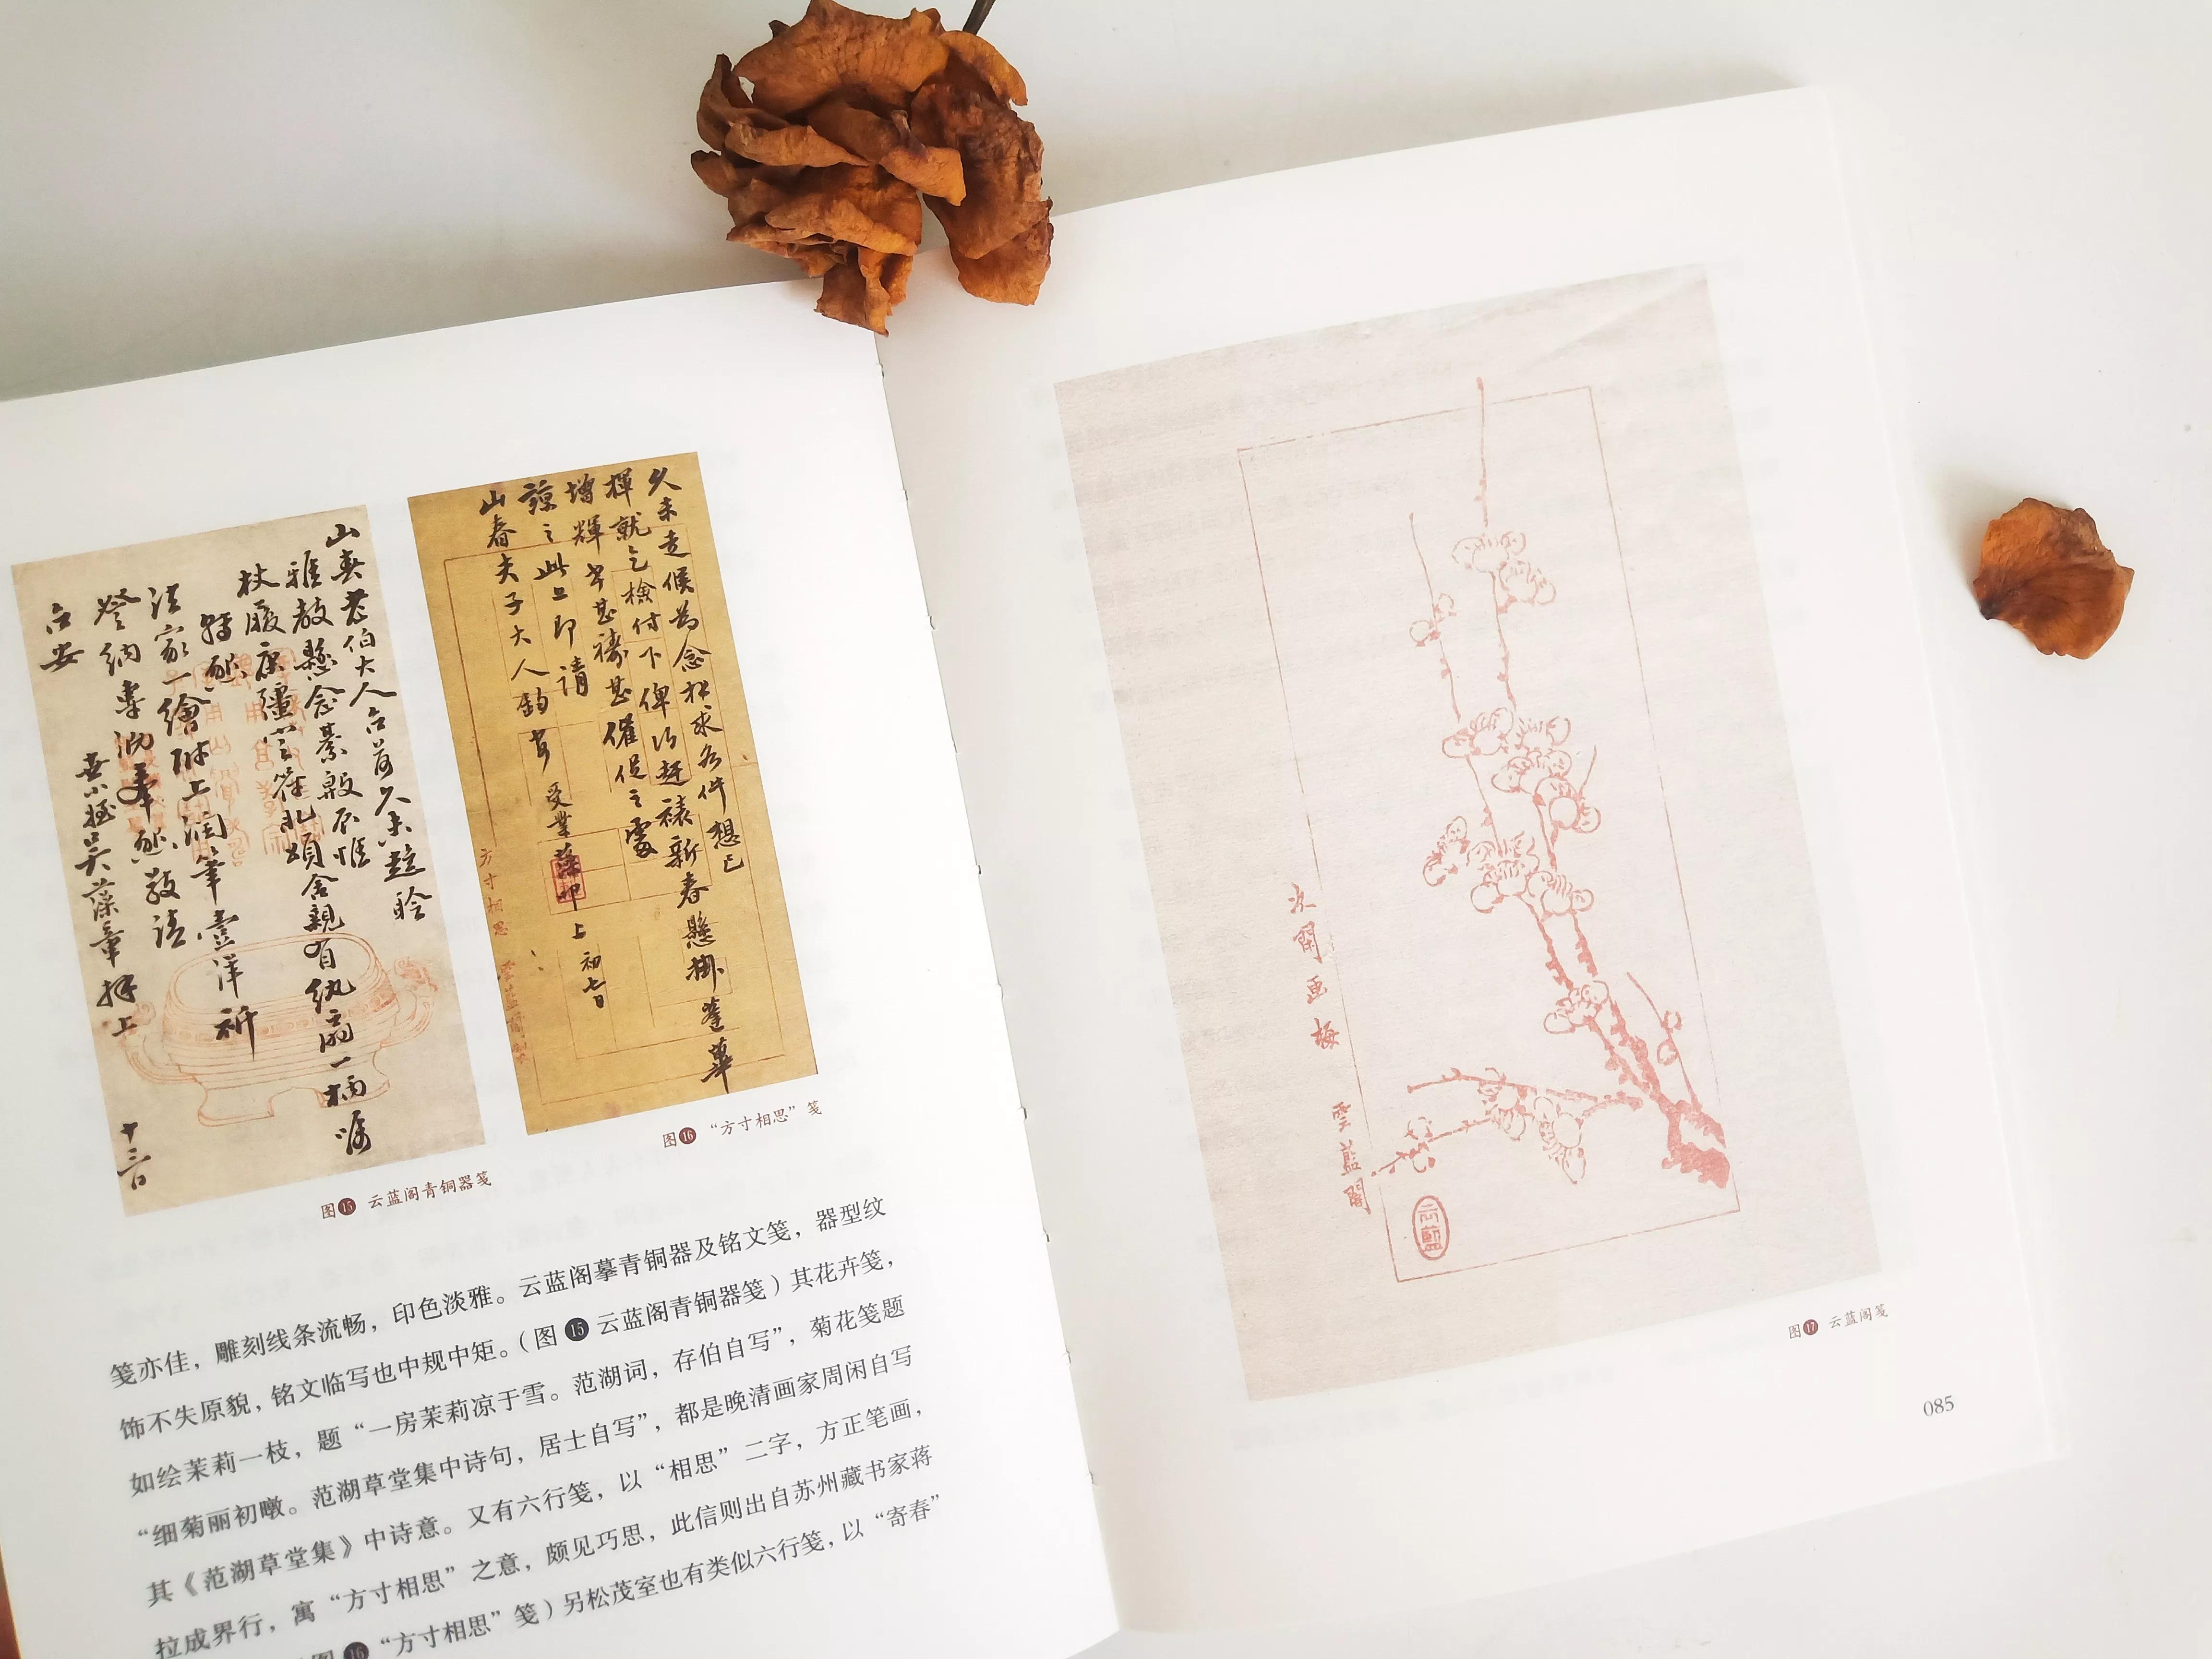 山春老伯大人台前久未趋聆
雅教懸念綦殷辰惟
杖履康彊
舍親有紈扇一柄嘱
法家一繪附上润筆壹洋祈
台安
世小姪吳藻章拜上
十三日
久未走候为念松求各件想已
揮就乞檢付下俾以赶裱新春懸掛蓬蓽
增輝幸甚禱甚催促之處
諒之此上即請
山春夫子大人鈞安
受業
上初七日
方寸相思
雲藍閣製
图15 云蓝阁青铜器笺
图16 “方寸相思”笺
笺亦佳，雕刻线条流畅，印色淡雅。云蓝阁摹青铜器及铭文笺，器型纹
饰不失原貌，铭文临写也中规中矩。（图15云蓝阁青铜器笺）其花卉笺，
如绘茉莉一枝，题“一房茉莉凉于雪。范湖词，存伯自写”，菊花笺题
“细菊丽初暾。范湖草堂集中诗句，居士自写”，都是晚清画家周闲自写
其《范湖草堂集》中诗意。又有六行笺，以“相思”二字，方正笔画，
拉成界行，寓“方寸相思”之意，颇见巧思，此信则出自苏州藏书家蒋
图16“方寸相思”笺）另松茂室也有类似六行笺，以“寄春”
次閑画梅
雲藍閣
云藍
图17 云蓝阁笺
085